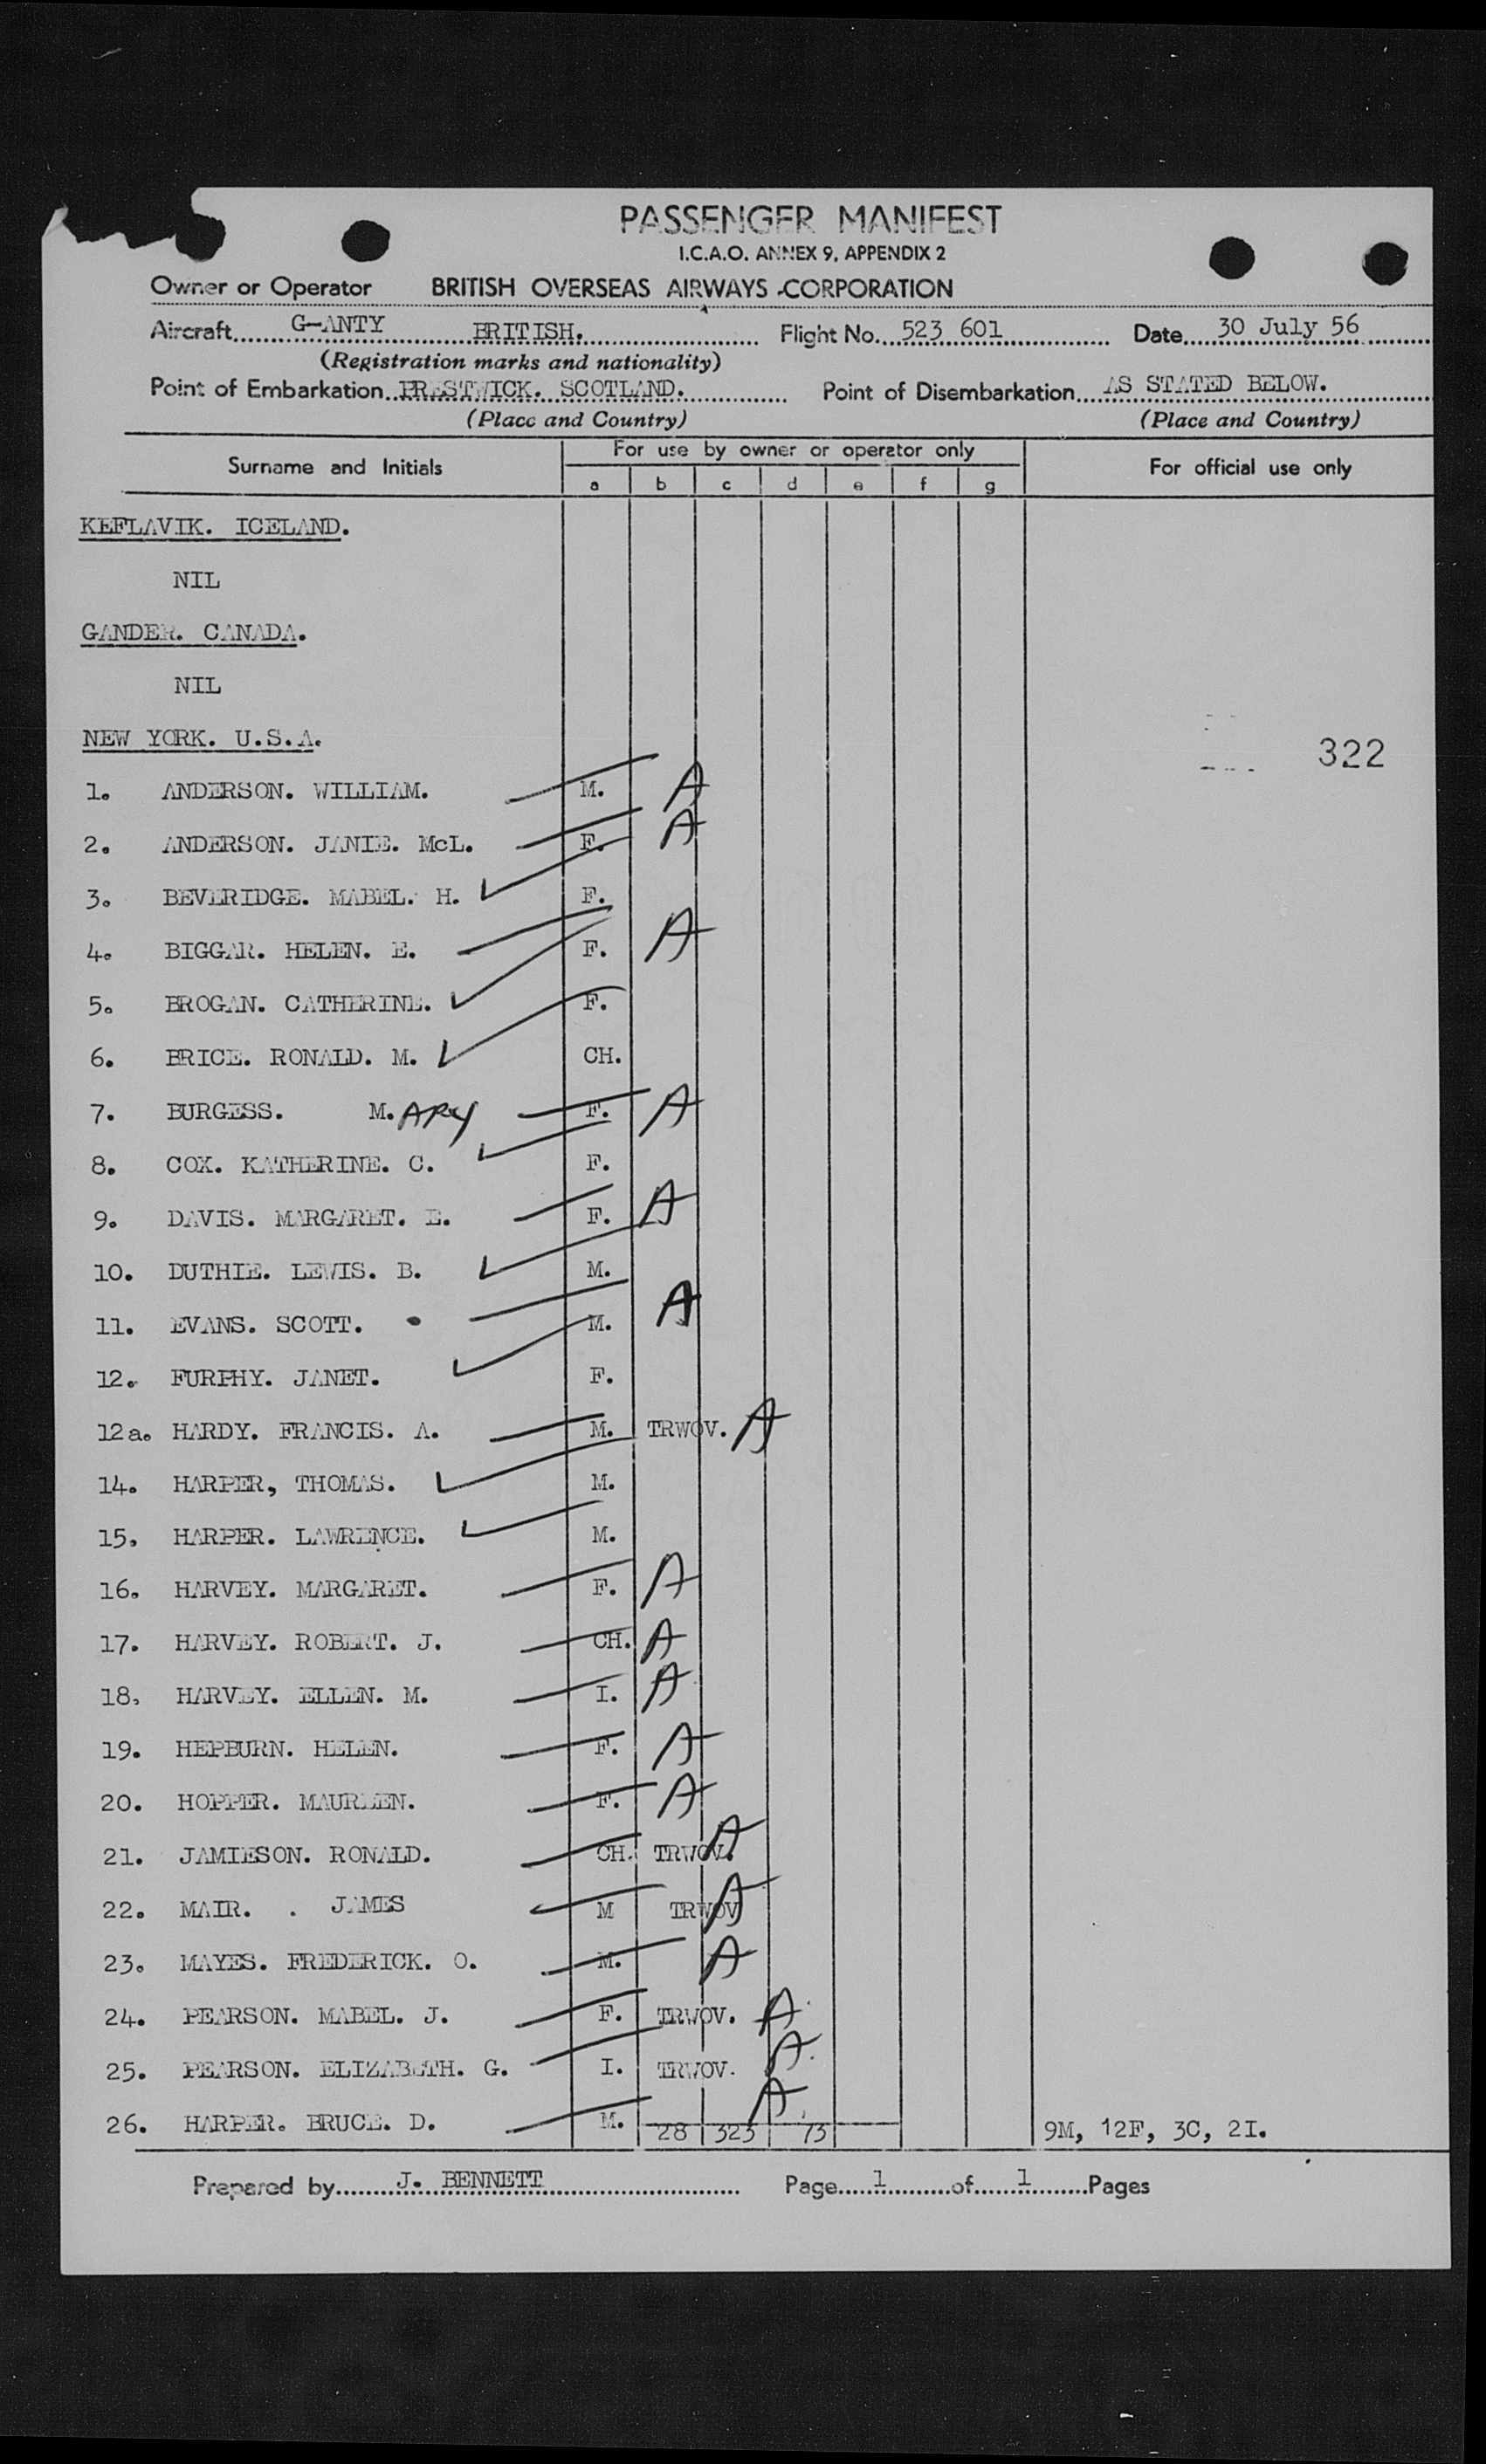 PASSENGER MANIFEST
I.C.A.O. ANNEX 9, APPENDIX 2
Owner or Operator BRITISH OVERSEAS AIRWAYS CORPORATION
Aircraft G-ANTY BRITISH. Flight No. 523 601 Date 30 July 56
(Registration marks and nationality)
Point of Embarkation PRESTWICK. SCOTLAND. Point of Disembarkation AS STATED BELOW.
(Place and Country) (Place and Country)
Surname and Initials For use by owner or operator only For official use only
a b c d e f g
KEFLAVIK. ICELAND.
NIL
GANDER. CANADA.
NIL
NEW YORK. U.S.A.
322
1. ANDERSON. WILLIAM. M. A
2. ANDERSON. JANIE. McL. F. A
3. BEVERIDGE. MABEL. H. F.
4. BIGGAR. HELEN. E. F. A
5. BROGAN. CATHERINE. F.
6. BRICE. RONALD. M. CH.
7. BURGESS. M.ARY F. A
8. COX. KATHERINE. C. F.
9. DAVIS. MARGARET. E. F. A
10. DUTHIE. LEWIS. B. M.
11. EVANS. SCOTT. M. A
12. FURPHY. JANET. F.
12a. HARDY. FRANCIS. A. M. TRWOV. A
14. HARPER, THOMAS. M.
15. HARPER. LAWRENCE. M.
16. HARVEY. MARGARET. F. A
17. HARVEY. ROBERT. J. CH. A
18. HARVEY. ELLEN. M. I. A
19. HEPBURN. HELEN. F. A
20. HOPPER. MAUREEN. F. A
21. JAMIESON. RONALD. CH. TRWOV. A
22. MAIR. . JAMES M TRWOV A
23. MAYES. FREDERICK. O. M. A
24. PEARSON. MABEL. J. F. TRWOV. A
25. PEARSON. ELIZABETH. G. I. TRWOV. A
26. HARPER. BRUCE. D. M. A
28 323 73 9M, 12F, 3C, 2I.
Prepared by J. BENNETT Page 1 of 1 Pages